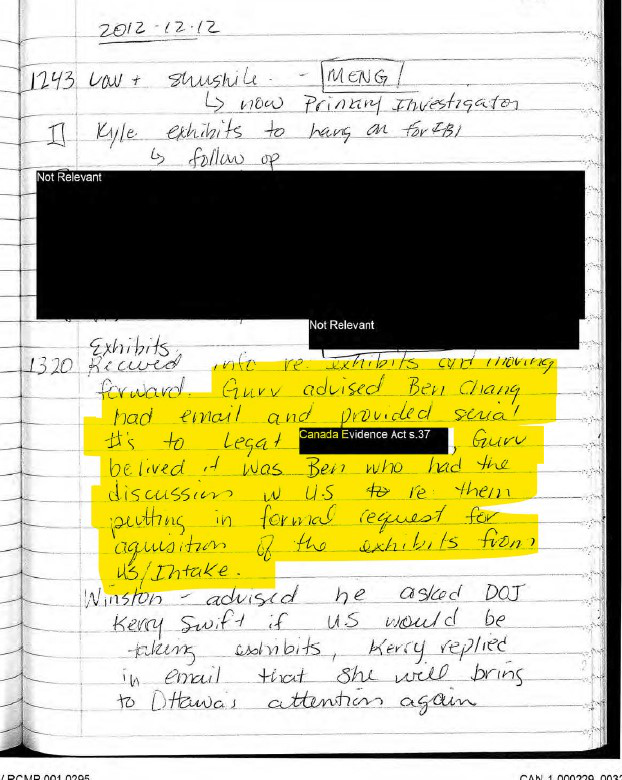 2012-12-12
1243 Vav + Shushile. - MENG
↳ now Primary Investigator
Kyle exhibits to hang on for FBI
↳ follow up
Not Relevant
Not Relevant
Exhibits.
1320 Recieved info re. exhibits and moving
forward. Gurv advised Ben Chang
had email and provided serial
#'s to Legat Canada Evidence Act s.37 , Gurv
belived it was Ben who had the
discussion w US to re: them
putting in formal request for
aquisition of the exhibits from
us/Intake.
Winston - advised he asked DOJ
Kerry Swift if US would be
taking exhibits, Kerry replied
in email that she will bring
to Ottawa's attention again
/ RCMP 001 0295